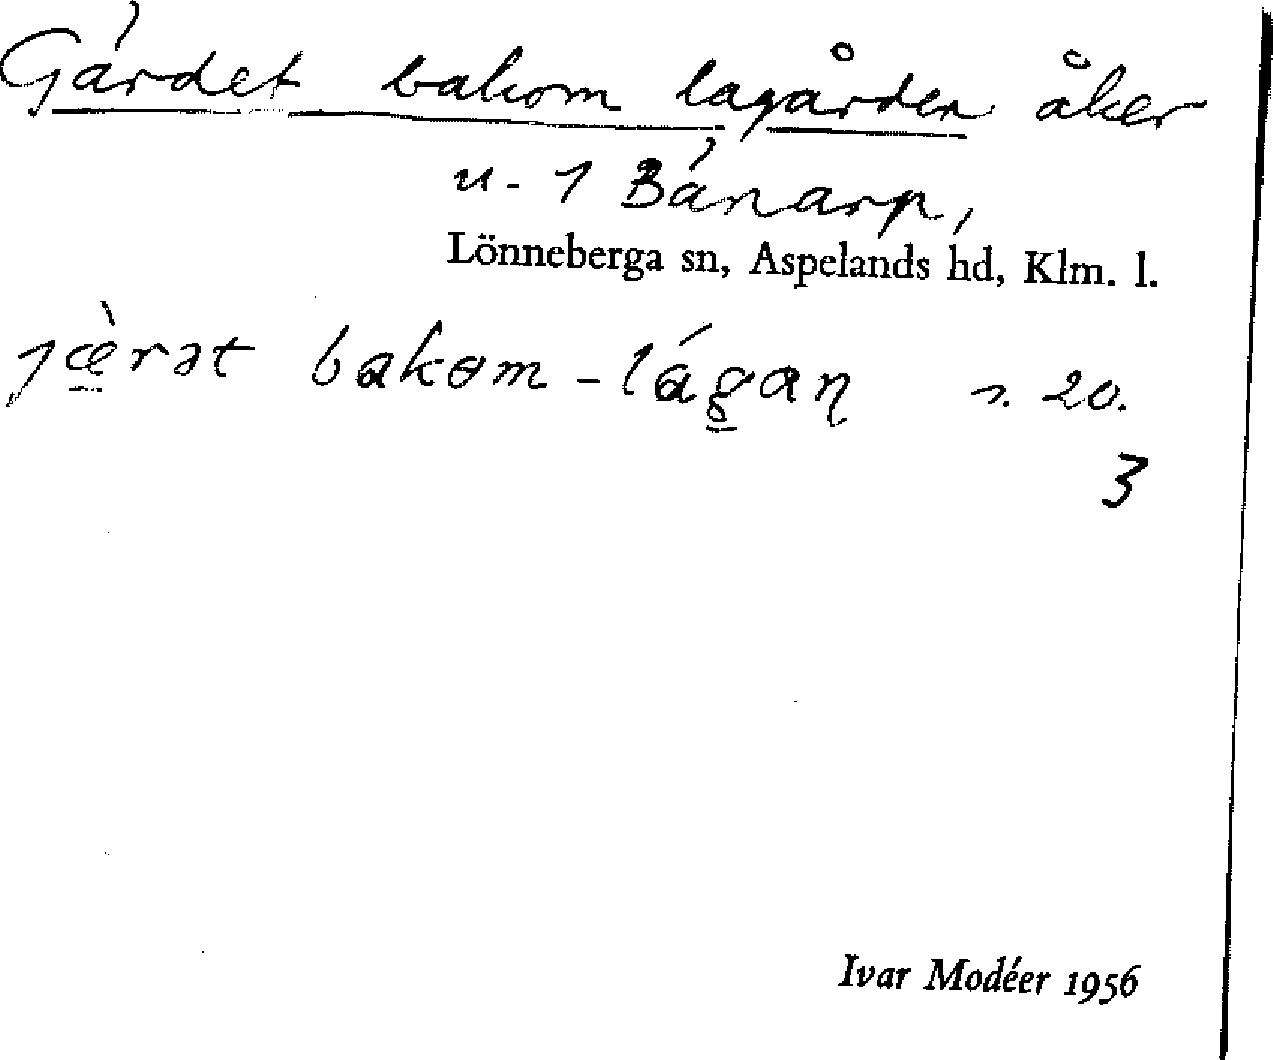 Gärdet bakom lagården åker
u. 1 Bänarp,
Lönneberga sn, Aspelands hd, Klm. l.
jæ̀rət bakɵm-lágaɳ s. 20.
3
Ivar Modéer 1956